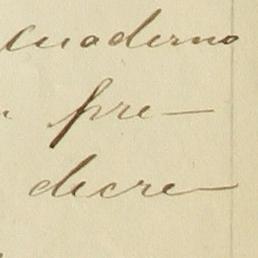 cuaderno
pre-
decre-